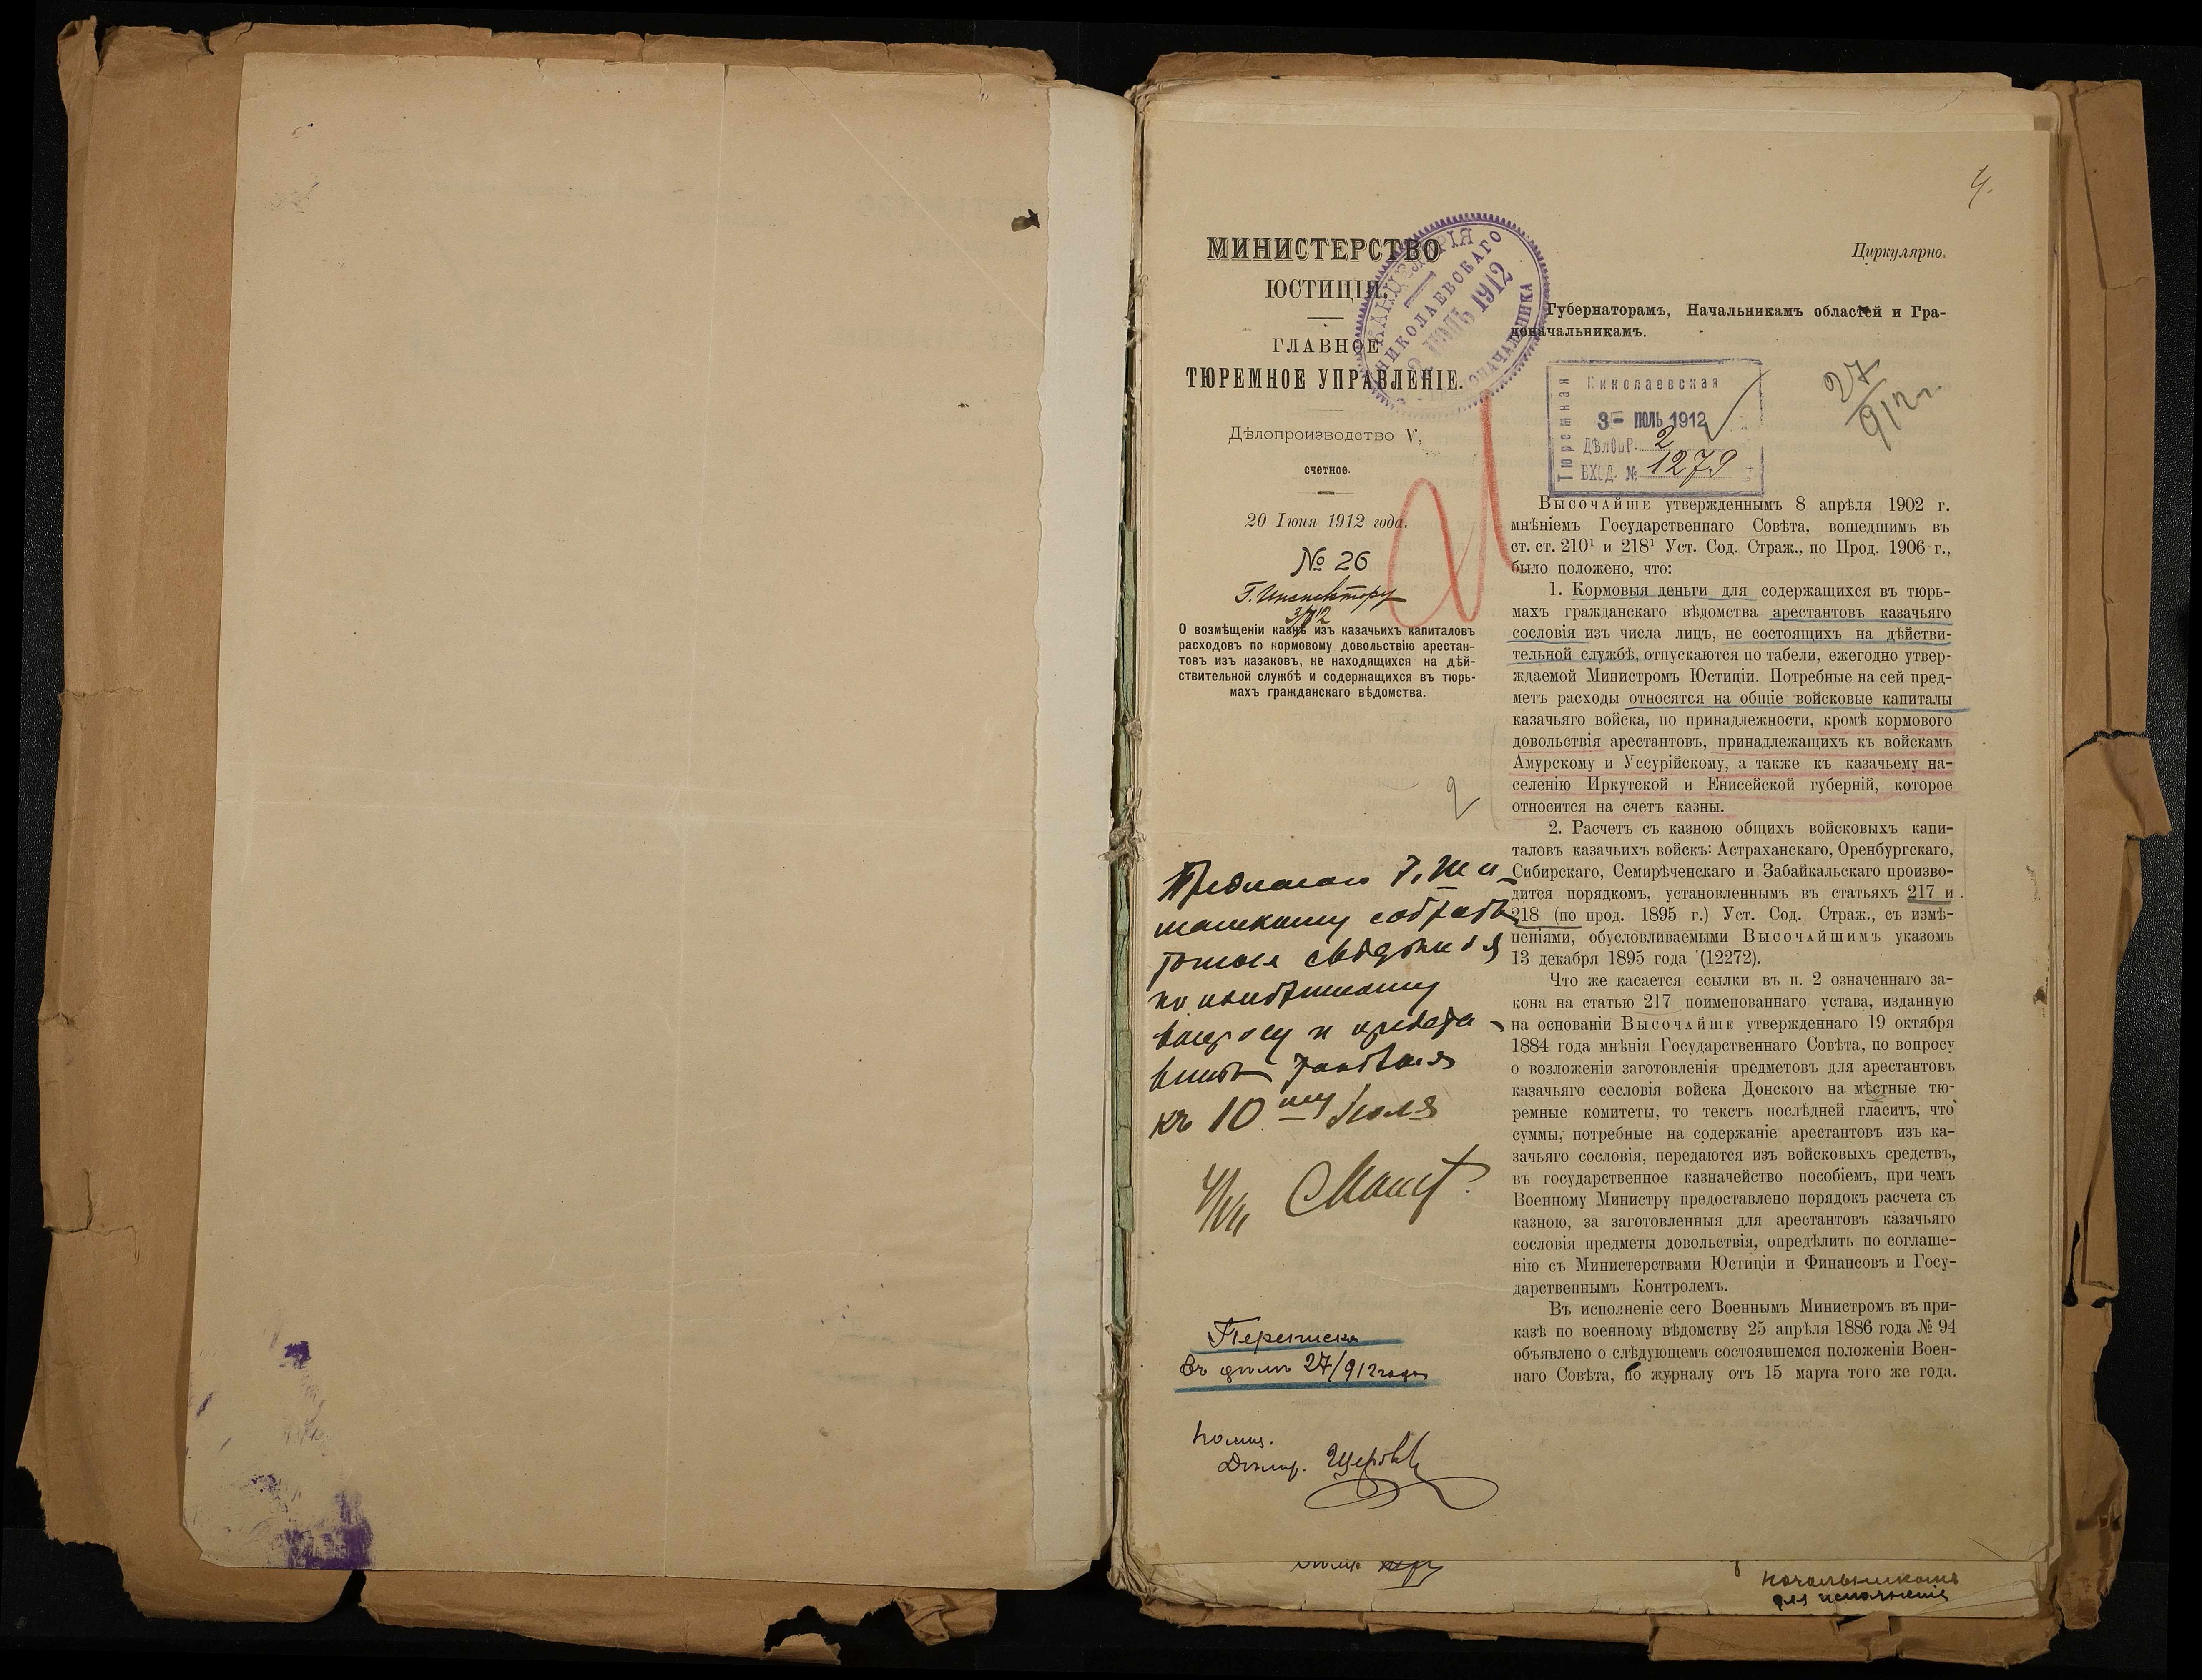 4.
МИНИСТЕРСТВО
ЮСТИЦІИ.
ГЛАВНОЕ
ТЮРЕМНОЕ УПРАВЛЕНІЕ.
Дѣлопроизводство V,
счетное.
20 Іюня 1912 года.
№ 26
Г. Инспектору
3/VII 12
О возмѣщеніи казнѣ изъ казачьихъ капиталовъ
расходовъ по кормовому довольствію арестан-
товъ изъ казаковъ, не находящихся на дѣй-
ствительной службѣ и содержащихся въ тюрь-
махъ гражданскаго вѣдомства.
КАНЦЕЛЯРІЯ
НИКОЛАЕВСКАГО
ІЮЛЬ 1912
ГРАДОНАЧАЛЬНИКА
Циркулярно.
Губернаторамъ, Начальникамъ областей и Гра-
доначальникамъ.
Тюремная
Николаевская
3- ІЮЛЬ 1912
ДѢЛОПР. 2
ВХОД. № 1279
27/912 г.
Высочайше утвержденнымъ 8 апрѣля 1902 г.
мнѣніемъ Государственнаго Совѣта, вошедшимъ въ
ст. ст. 210¹ и 218¹ Уст. Сод. Страж., по Прод. 1906 г.,
было положено, что:
1. Кормовыя деньги для содержащихся въ тюрь-
махъ гражданскаго вѣдомства арестантовъ казачьяго
сословія изъ числа лицъ, не состоящихъ на дѣйстви-
тельной службѣ, отпускаются по табели, ежегодно утвер-
ждаемой Министромъ Юстиціи. Потребные на сей пред-
метъ расходы относятся на общіе войсковые капиталы
казачьяго войска, по принадлежности, кромѣ кормового
довольствія арестантовъ, принадлежащихъ къ войскамъ
Амурскому и Уссурійскому, а также къ казачьему на-
селенію Иркутской и Енисейской губерній, которое
относится на счетъ казны.
2. Расчетъ съ казною общихъ войсковыхъ капи-
таловъ казачьихъ войскъ: Астраханскаго, Оренбургскаго,
Сибирскаго, Семирѣченскаго и Забайкальскаго произво-
дится порядкомъ, установленнымъ въ статьяхъ 217 и
218 (по прод. 1895 г.) Уст. Сод. Страж., съ измѣ-
неніями, обусловливаемыми Высочайшимъ указомъ
13 декабря 1895 года (12272).
Что же касается ссылки въ п. 2 означеннаго за-
кона на статью 217 поименованнаго устава, изданную
на основаніи Высочайше утвержденнаго 19 октября
1884 года мнѣнія Государственнаго Совѣта, по вопросу
о возложеніи заготовленія предметовъ для арестантовъ
казачьяго сословія войска Донского на мѣстные тю-
ремные комитеты, то текстъ послѣдней гласитъ, что
суммы, потребные на содержаніе арестантовъ изъ ка-
зачьяго сословія, передаются изъ войсковыхъ средствъ,
въ государственное казначейство пособіемъ, при чемъ
Военному Министру предоставлено порядокъ расчета съ
казною, за заготовленныя для арестантовъ казачьяго
сословія предметы довольствія, опредѣлить по соглаше-
нію съ Министерствами Юстиціи и Финансовъ и Госу-
дарственнымъ Контролемъ.
Въ исполненіе сего Военнымъ Министромъ въ при-
казѣ по военному вѣдомству 25 апрѣля 1886 года № 94
объявлено о слѣдующемъ состоявшемся положеніи Воен-
наго Совѣта, по журналу отъ 15 марта того же года.
Предлагаю
собрать
свѣдѣнія
по
вопросу и
къ 10му іюля
4/VII
Переписка
въ дѣлѣ 27/912 года
Помощ.
Дѣлопр.
начальникамъ
для исполненія